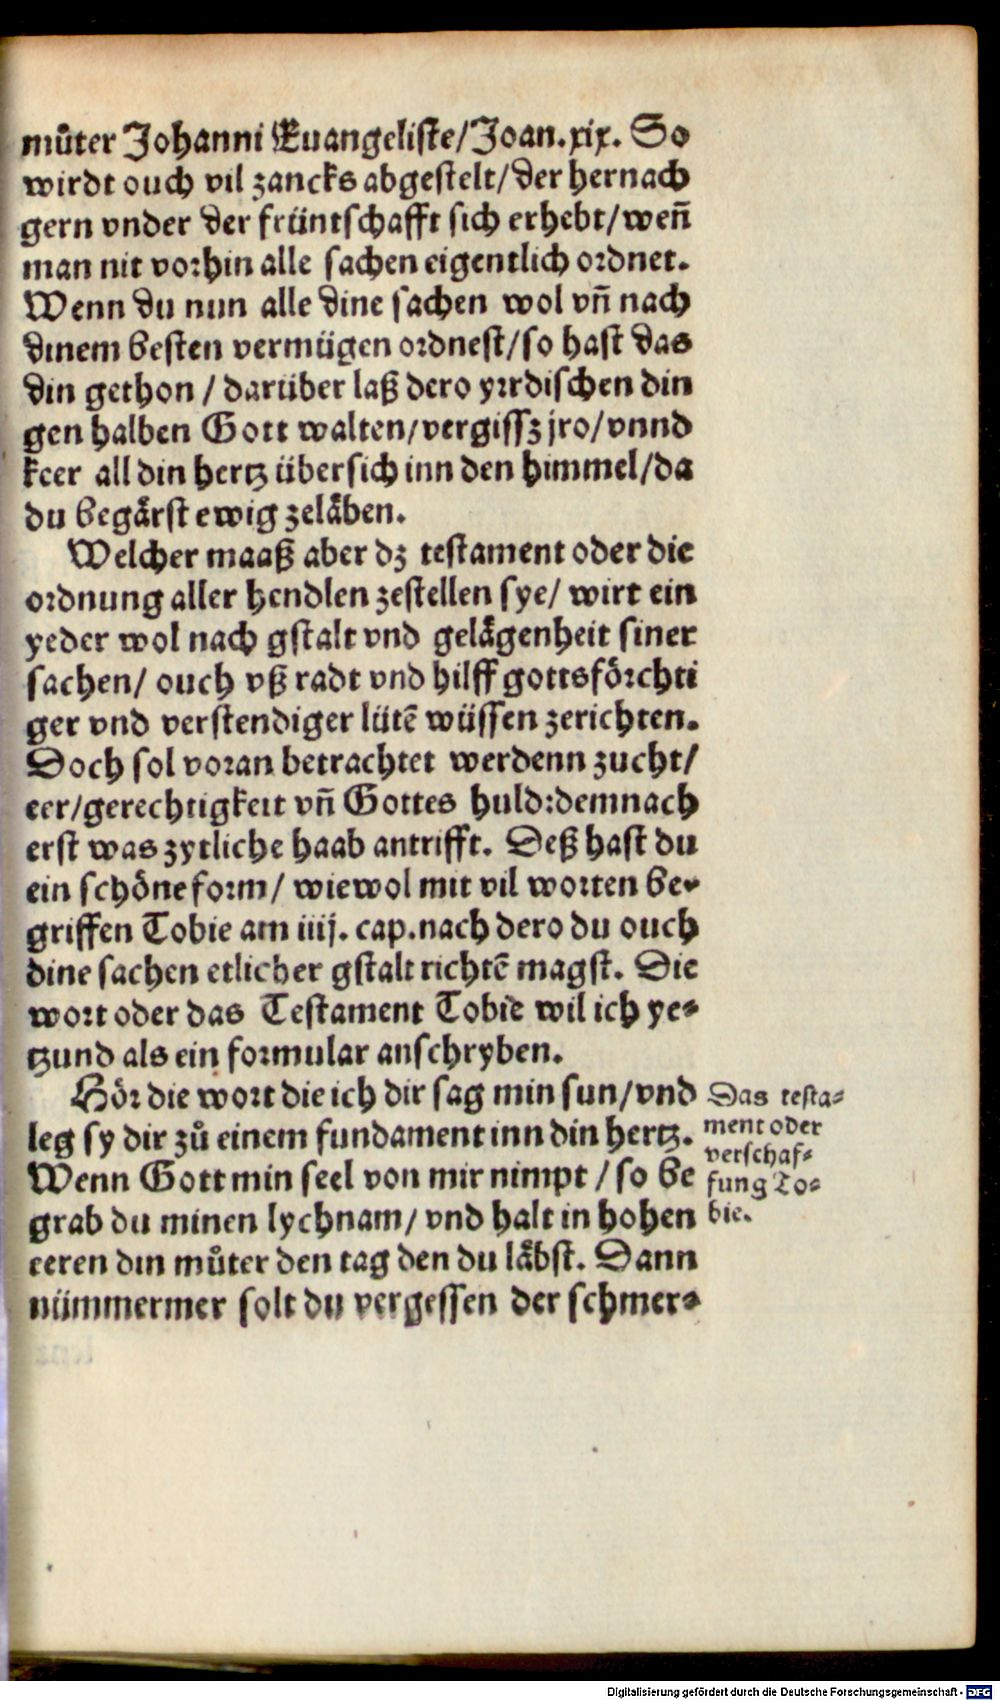 můter Johanni Euangeliste/Joan.xix. So
wirdt ouch vil zancks abgestelt/der hernach
gern vnder der früntschafft sich erhebt/weñ
man nit vorhin alle sachen eigentlich ordnet.
Wenn du nun alle dine sachen wol vñ nach
dinem besten vermügen ordnest/so hast das
din gethon / darüber laß dero yrrdischen din
gen halben Gott walten/vergissz jro/vnnd
keer all din hertz übersich inn den himmel/da
du begaͤrst ewig zelaͤben.
Welcher maaß aber dz testament oder die
ordnung aller hendlen zestellen sye/ wirt ein
yeder wol nach gstalt vnd gelaͤgenheit siner
sachen/ ouch vß radt vnd hilff gottsfoͤrchti
ger vnd verstendiger lütẽ wüssen zerichten.
Doch sol voran betrachtet werdenn zucht/
eer/gerechtigkeit vñ Gottes huld:demnach
erst was zytliche haab antrifft. Deß hast du
ein schoͤne form/ wiewol mit vil worten be-
griffen Tobie am iiij. cap.nach dero du ouch
dine sachen etlicher gstalt richtẽ magst. Die
wort oder das Testament Tobie wil ich ye-
tzund als ein formular anschryben.
Hoͤr die wort die ich dir sag min sun/vnd
leg sy dir zů einem fundament inn din hertz.
Wenn Gott min seel von mir nimpt / so be
grab du minen lychnam/ vnd halt in hohen
eeren din můter den tag den du laͤbst. Dann
nümmermer solt du vergessen der schmer-
Das testa-
ment oder
verschaf-
fung To-
bie.
Digitalisierung gefördert durch die Deutsche Forschungsgemeinschaft - DFG